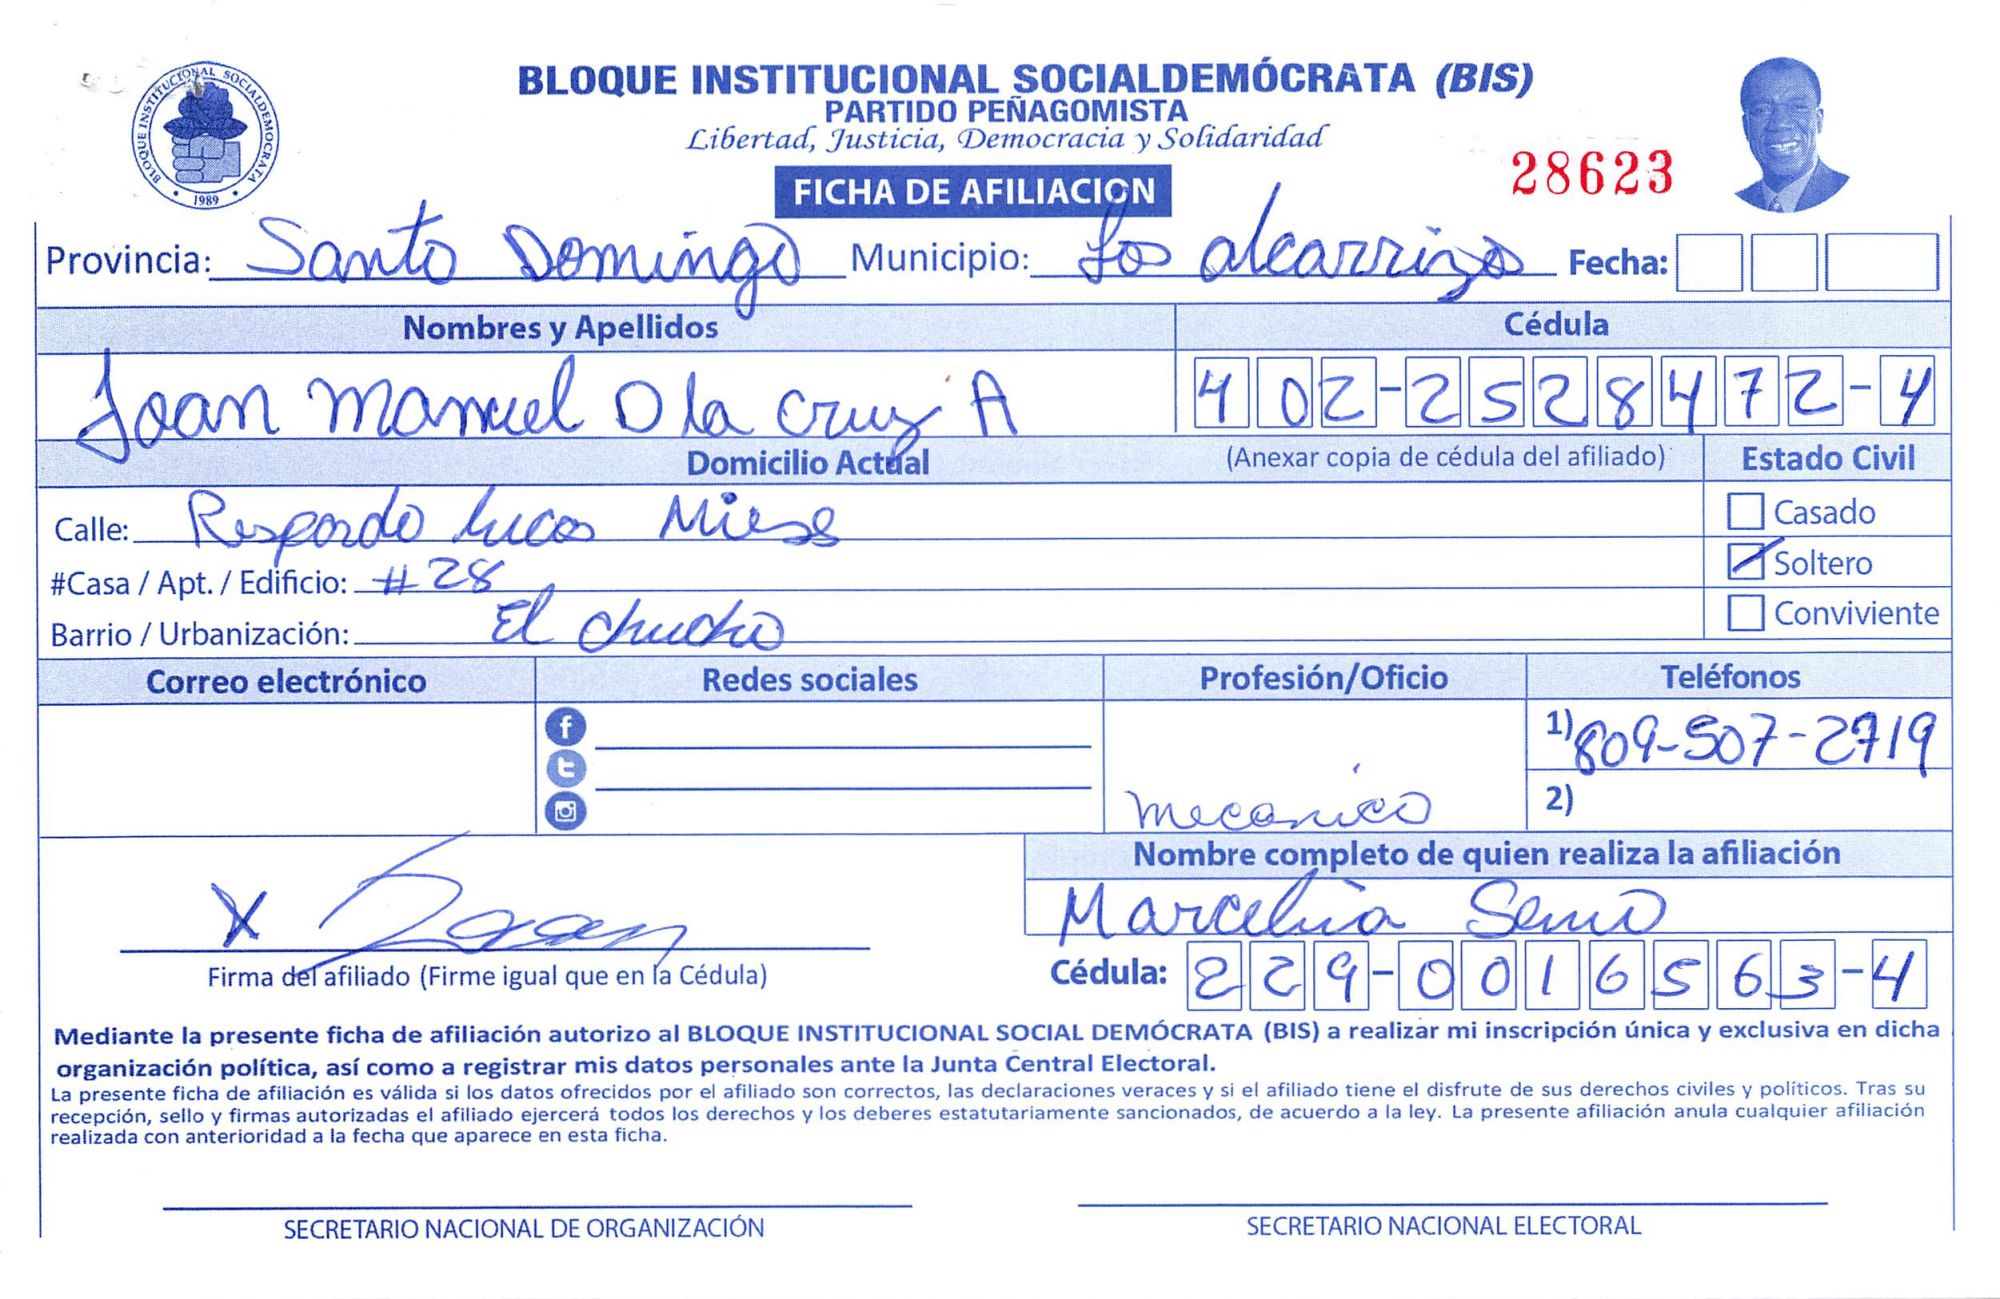 BLOQUE INSTITUCIONAL SOCIALDEMÓCRATA (BIS)
PARTIDO PEÑAGOMISTA
Libertad, Justicia, Democracia y Solidaridad
BLOQUE INSTITUCIONAL SOCIALDEMOCRATA
1989
28623
FICHA DE AFILIACION
Provincia: Santo Domingo Municipio: Los alcarrizos Fecha:
Nombres y Apellidos Cédula
Joan manuel D la cruz A 402-2528472-4
Domicilio Actual (Anexar copia de cédula del afiliado) Estado Civil
Calle: Respardo lucas Miese Casado
#Casa / Apt. / Edificio: #28 Soltero
Barrio / Urbanización: El chucho Conviviente
Correo electrónico Redes sociales Profesión/Oficio Teléfonos
1) 809-507-2719
mecanico 2)
Nombre completo de quien realiza la afiliación
X Marcelina
Firma del afiliado (Firme igual que en la Cédula) Cédula: 229-0016563-4
Mediante la presente ficha de afiliación autorizo al BLOQUE INSTITUCIONAL SOCIAL DEMÓCRATA (BIS) a realizar mi inscripción única y exclusiva en dicha
organización política, así como a registrar mis datos personales ante la Junta Central Electoral.
La presente ficha de afiliación es válida si los datos ofrecidos por el afiliado son correctos, las declaraciones veraces y si el afiliado tiene el disfrute de sus derechos civiles y políticos. Tras su
recepción, sello y firmas autorizadas el afiliado ejercerá todos los derechos y los deberes estatutariamente sancionados, de acuerdo a la ley. La presente afiliación anula cualquier afiliación
realizada con anterioridad a la fecha que aparece en esta ficha.
SECRETARIO NACIONAL DE ORGANIZACIÓN SECRETARIO NACIONAL ELECTORAL